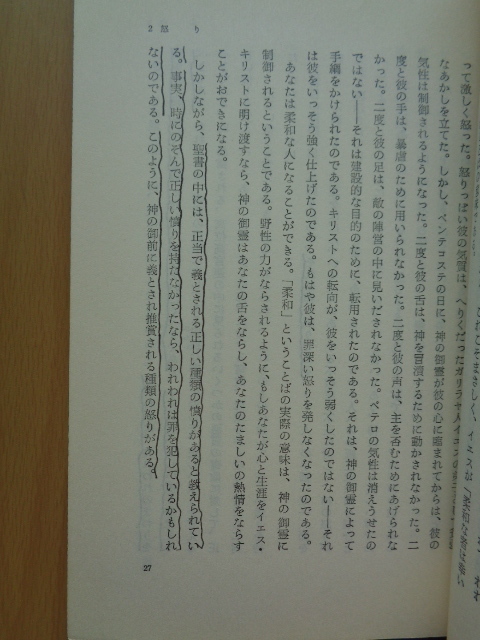 って激しく怒った。怒りっぽい彼の気質は、へりくだったガリラヤ人イエスの
なあかしを立てた。しかし、ペンテコステの日に、神の御霊が彼の心に臨まれてからは、彼の
気性は制御されるようになった。二度と彼の舌は、神を冒瀆するために動かされなかった。二
度と彼の手は、暴虐のために用いられなかった。二度と彼の声は、主を否むためにあげられな
かった。二度と彼の足は、敵の陣営の中に見いだされなかった。ペテロの気性は消えうせたの
ではない――それは建設的な目的のために、転用されたのである。それは、神の御霊によって
手綱をかけられたのである。キリストへの転向が、彼をいっそう弱くしたのではない――それ
は彼をいっそう強く仕上げたのである。もはや彼は、罪深い怒りを発しなくなったのである。
あなたは柔和な人になることができる。「柔和」ということばの実際の意味は、神の御霊に
制御されるということである。野性の力がならされるように、もしあなたが心と生涯をイエス・
キリストに明け渡すなら、神の御霊はあなたの舌をならし、あなたのたましいの熱情をならす
ことがおできになる。
しかしながら、聖書の中には、正当で義とされる正しい種類の憤りがあると教えられてい
る。事実、時にのぞんで正しい憤りを持たなかったなら、われわれは罪を犯しているかもしれ
ないのである。このように、神の御前に義とされ推賞される種類の怒りがある。
2 怒り
27